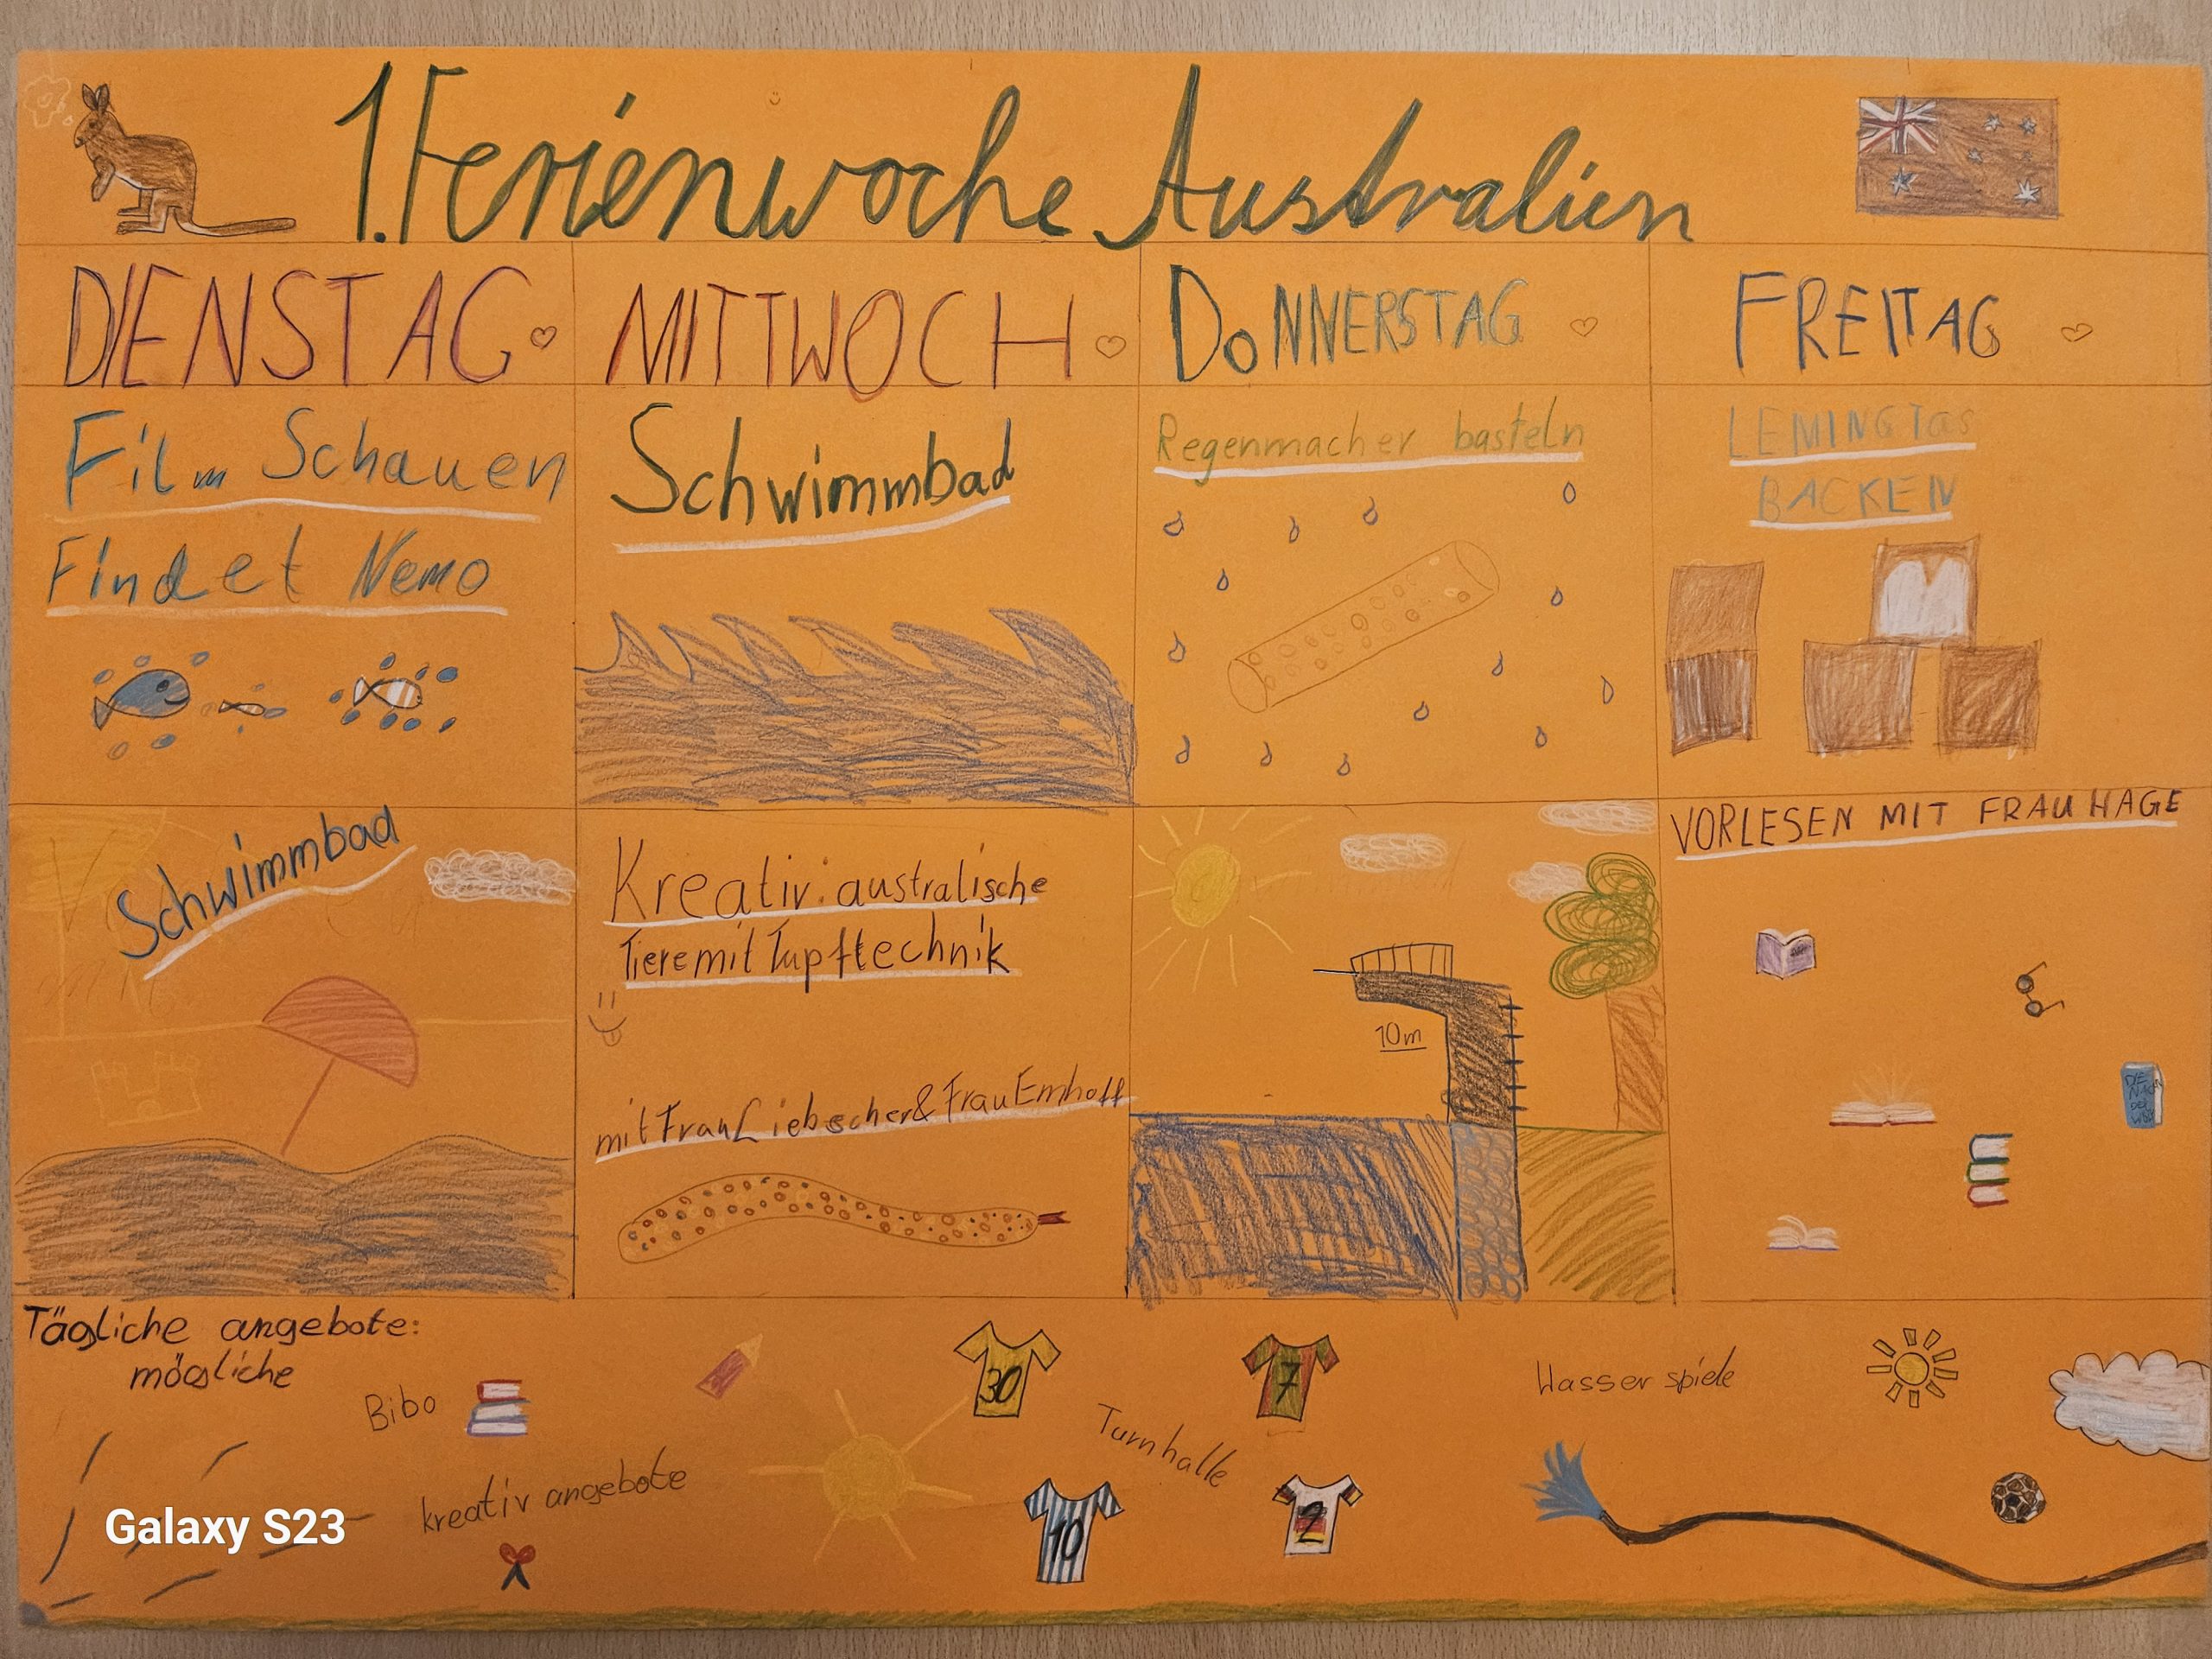 1. Ferienwoche Australien
DIENSTAG
MITTWOCH
DONNERSTAG
FREITAG
Film Schauen
Findet Nemo
Schwimmbad
Regenmacher basteln
LEMINGTas
BACKEN
Schwimmbad
Kreativ: australische
Tiere mit Tupftechnik
mit Frau Liebscher & Frau Emhoff
10m
VORLESEN MIT FRAU HAGE
Tägliche angebote:
mögliche
Bibo
kreativ angebote
30
7
Turnhalle
10
2
Wasser spiele
Galaxy S23